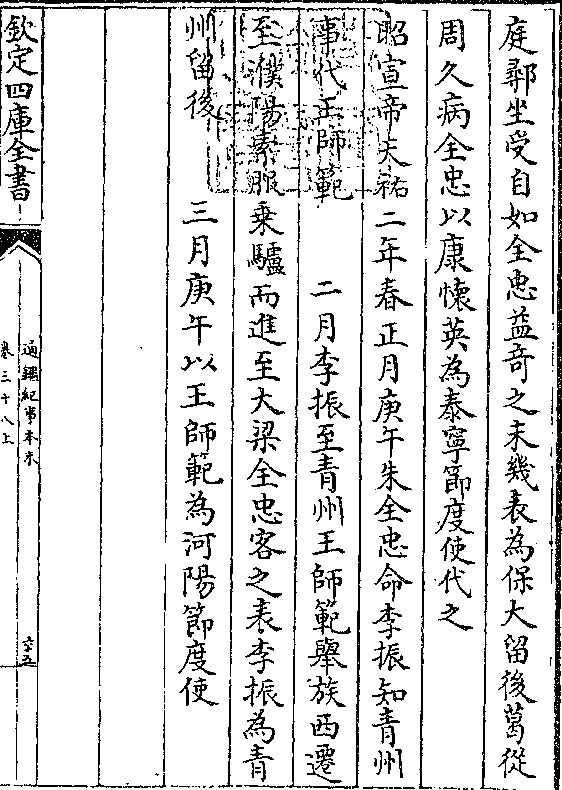 庭鄩坐受自如全忠益竒之未幾表為保大留後葛從
周久病全忠以康懐英為泰寧節度使代之
昭宣帝天祐二年春正月庚午朱全忠命李振知青州
事代王師範　二月李振至青州王師範舉族西遷
至濮陽素服乗驢而進至大梁全忠客之表李振為青
州留後　三月庚午以王師範為河陽節度使
欽定四庫全書
通鑑紀事本末
卷三十八上
六十五